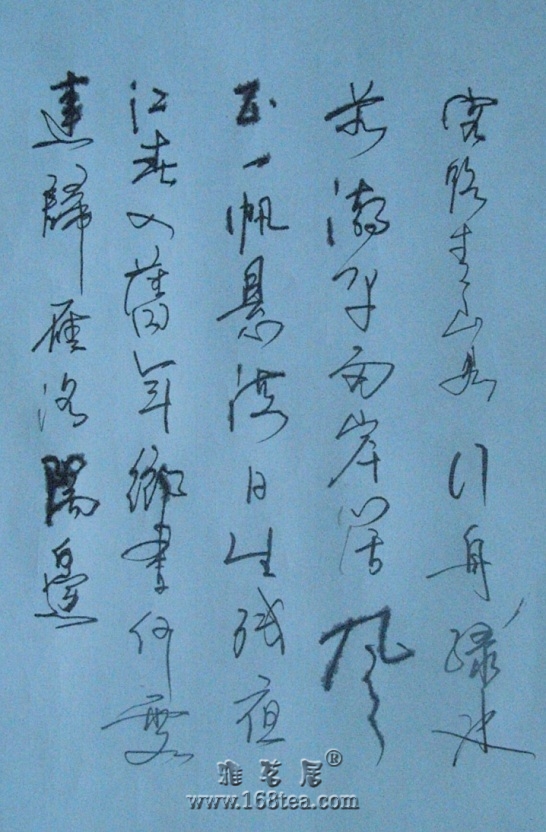 客路青山行舟绿水
前潮平两岸阔風
正一帆悬海日生残夜
江春入舊年鄉書何處
達歸雁洛陽邊
雅茗居®
www.168tea.com